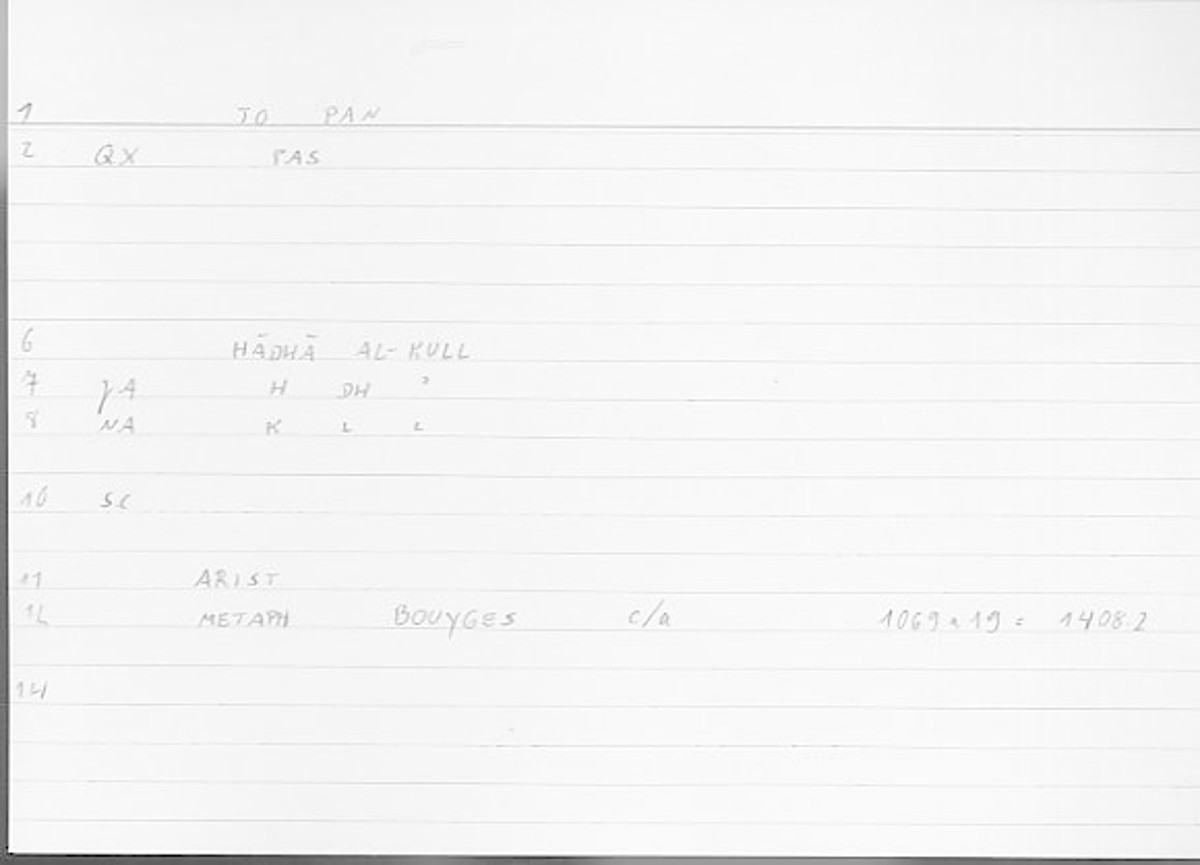 1 TO PAN
2 QX PAS
6 HĀDHĀ AL-KULL
7 γA H DH ʾ
8 NA K L L
10 SC
11 ARIST
12 METAPH BOUYGES c/a 1069a19 = 1408.2
14